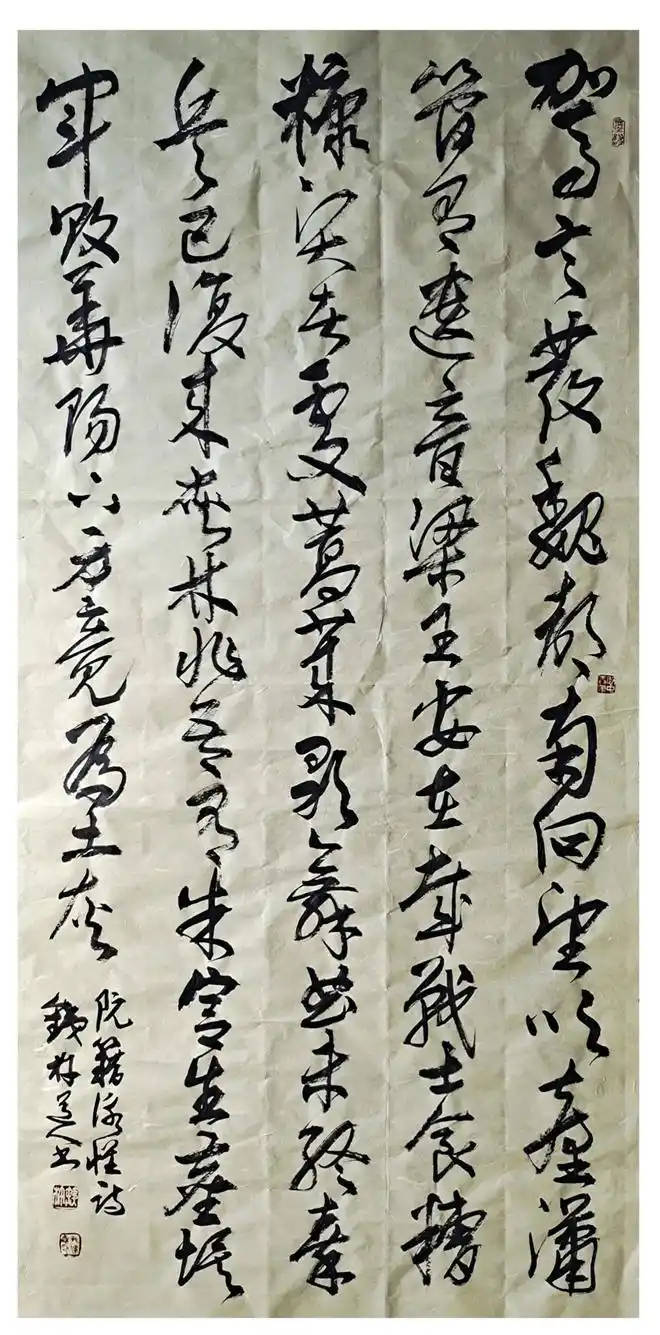 駕言發魏都南向望吹臺瀟
管有遺音梁王安在哉戰士食糟
糠賢者處蒿萊歌舞曲未終秦
兵已復來夾林非吾有朱宮生塵埃
軍敗華陽下身竟為土灰
阮籍詠懷詩
道人书